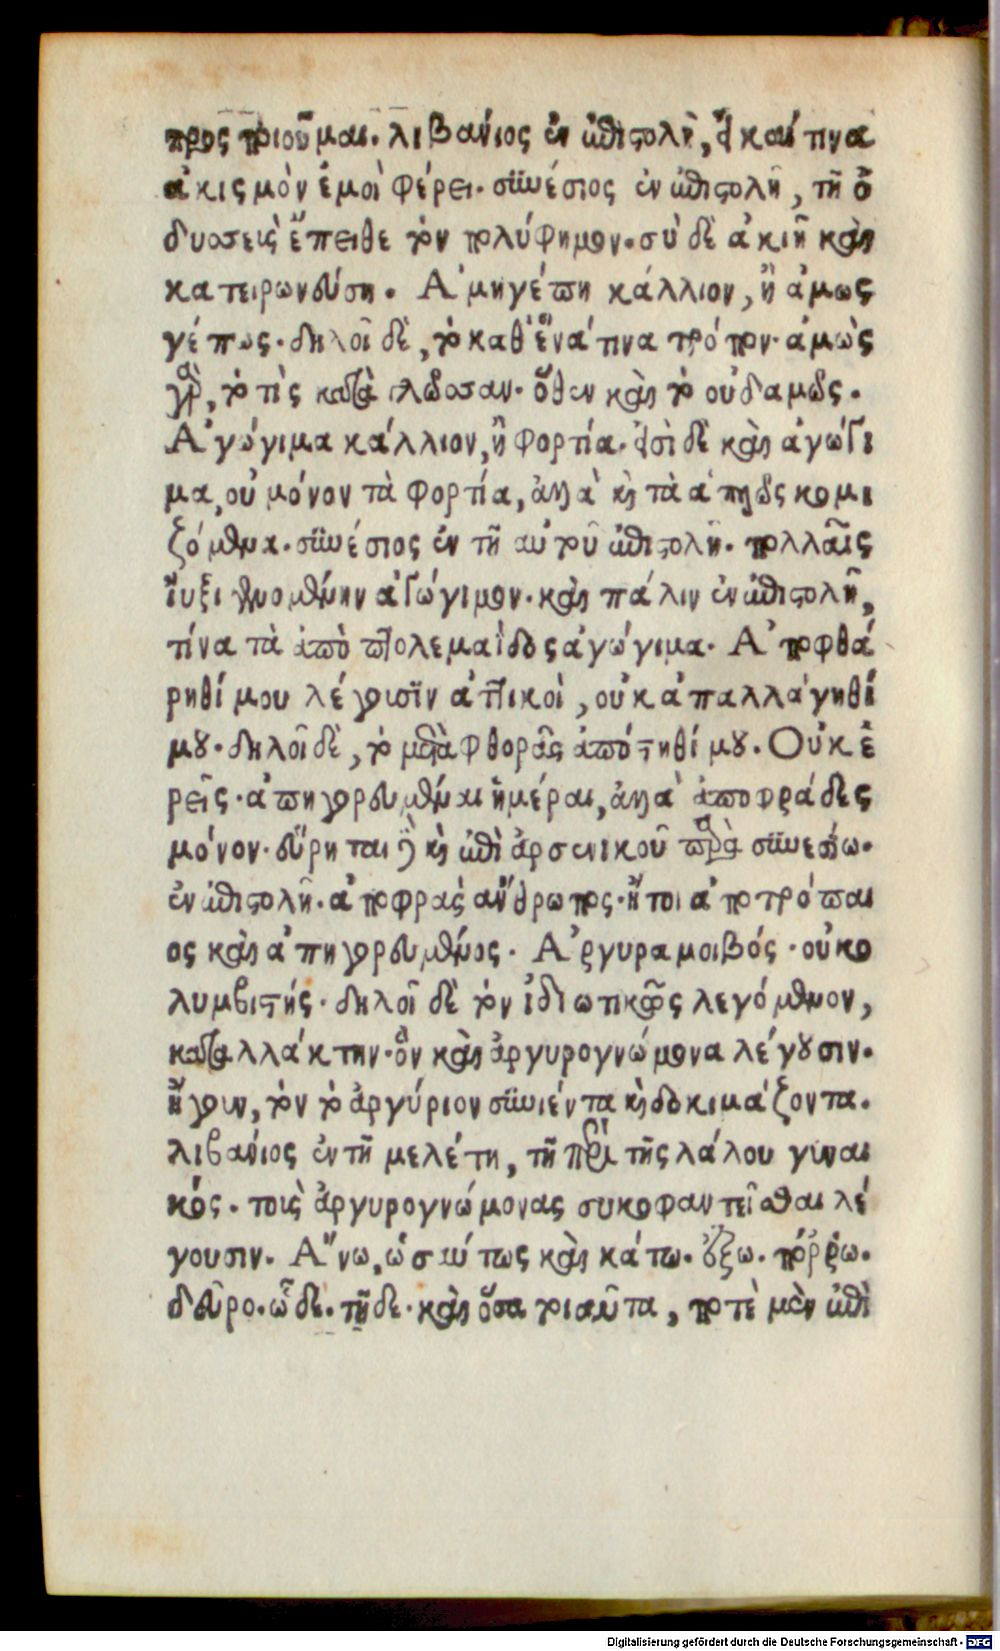 προσποιοῦμαι. λιβανίος ἐν ἐπιστολῆ, εἰ καί τινα
ἀκισμὸν ἐμοὶ φέρει. συνέσιος ἐν ἐπιστολῆ, τῆ ὀ
δυσσεὺς ἔπειθε τὸν πολύφημον. σὺ δὲ ἀκιῆ καὶ
κατειρωνεύση. Ἀμηγέπη κάλλιον, ἢ ἀμως
γέπως. δηλοῖ δὲ, τὸ καθ' ἕνά τινα τρόπον. ἀμῶς
γὰρ, τὸ τὶς κατὰ γλῶσσαν. ὅθεν καὶ τὸ οὐδαμῶς.
Ἀγώγιμα κάλλιον, ἢ φορτία. εἰσὶ δὲ καὶ ἀγώγι
μα, οὐ μόνον τὰ φορτία, ἀλλὰ καὶ τὰ ἁπλῶς κομι
ζόμενα. συνέσιος ἐν τῆ αὐτοῦ ἐπιστολῆ. πολλαῖς
ἴυξι γενομένην ἀγώγιμον. καὶ πάλιν ἐν ἐπιστολῆ,
τίνα τὰ ἀπὸ πτολεμαΐδος ἀγώγιμα. Ἀποφθά
ρηθί μου λέγουσιν ἀττικοὶ, οὐκ ἀπαλλάγηθί
μου. δηλοῖ δὲ, τὸ μετὰ φθορᾶς ἀπόστηθί μου. Οὐκ ἐ
ρεῖς. ἀπηγορευμέναι ἡμέραι, ἀλλὰ ἀποφράδες
μόνον. εὕρηται δὲ καὶ ἐπὶ ἀρσενικοῦ παρὰ συνεσίω.
ἐν ἐπιστολῆ. ἀποφρὰς ἄνθρωπος. ἤτοι ἀποτρόπαι
ος καὶ ἀπηγορευμένος. Ἀργυραμοιβός. οὐ κο
λυμβιστής. δηλοῖ δὲ τὸν ἰδιωτικῶς λεγόμενον,
καταλλάκτην. ὃν καὶ ἀργυρογνώμονα λέγουσιν.
ἤγουν, τὸν τὸ ἀργύριον συνιέντα καὶ δοκιμάζοντα.
λιβανίος ἐν τῆ μελέτη, τῆ περὶ τῆς λάλου γυναι
κός. τοὺς ἀργυρογνώμονας συκοφαντεῖσθαι λέ
γουσιν. Ἄνω, ὡσαύτως καὶ κάτω. ἔξω. πόῤῥω.
δεῦρο. ὧδε. τῆδε. καὶ ὅσα τοιαῦτα, ποτὲ μὲν ἐπὶ
Digitalisierung gefördert durch die Deutsche Forschungsgemeinschaft - DFG